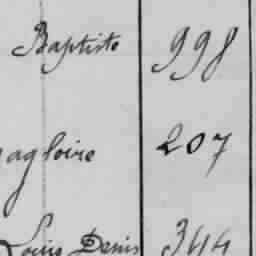 Baptiste 998
agloire 207
Louis Denis 344